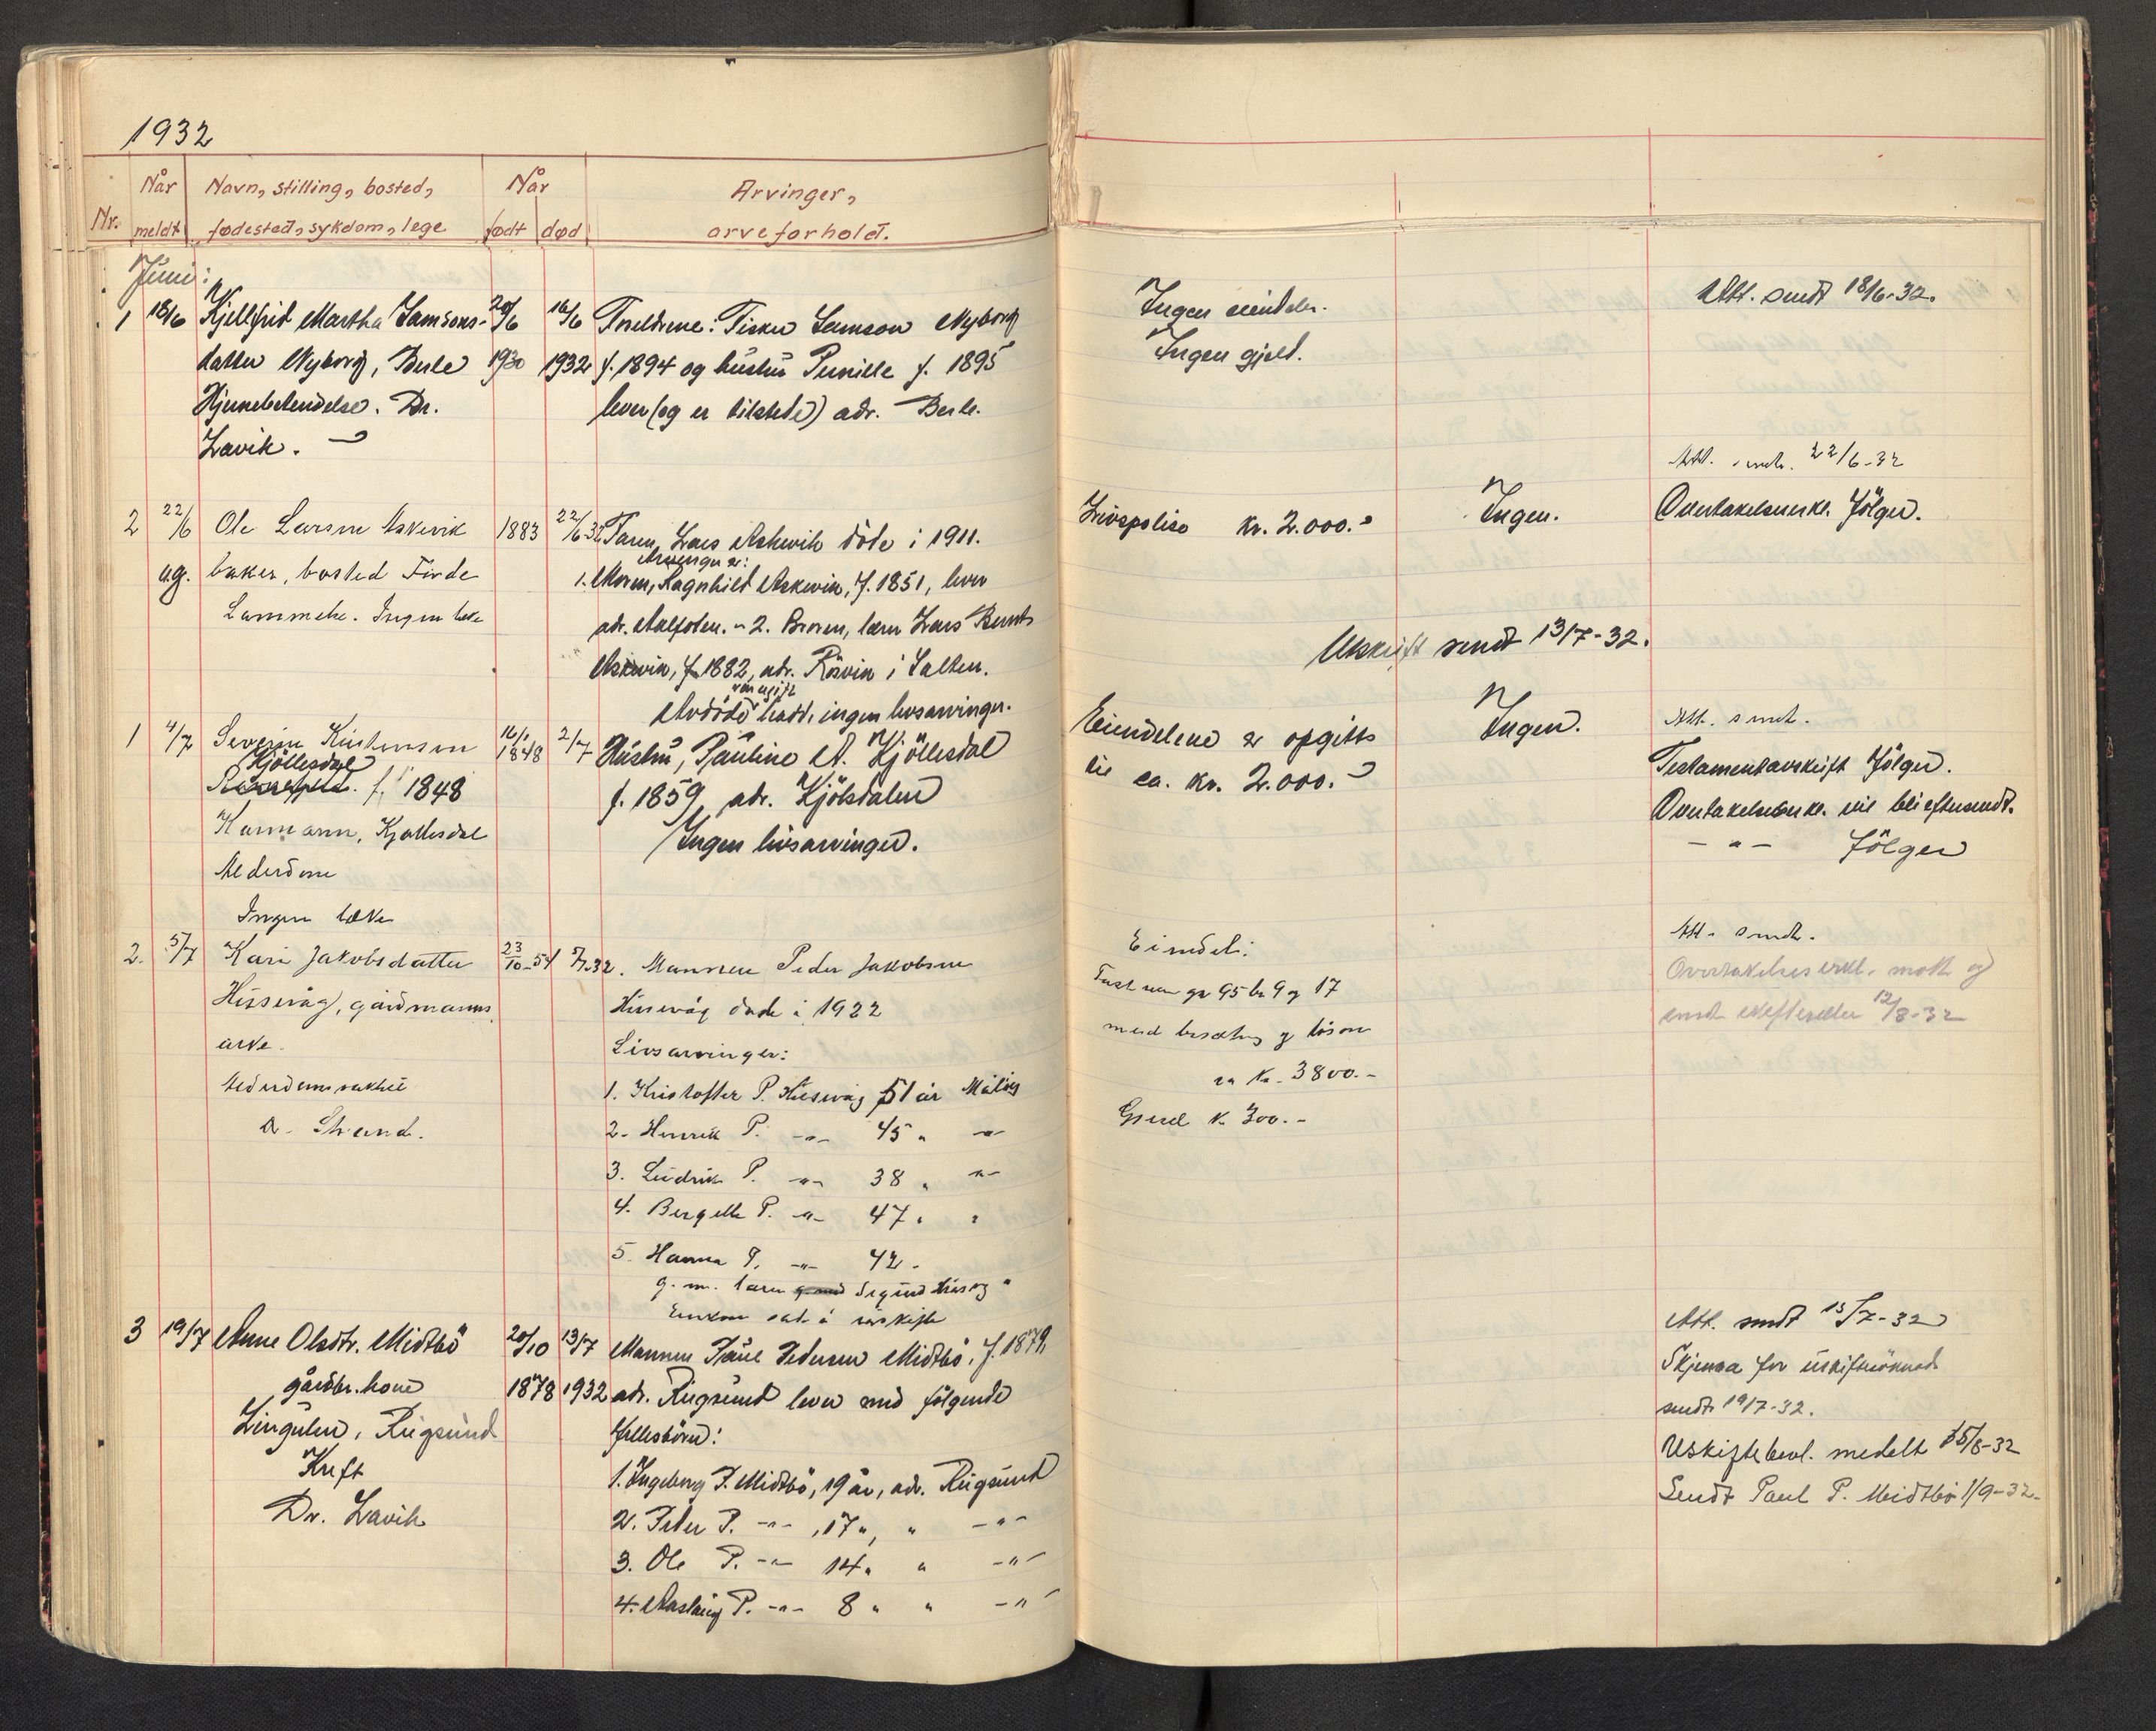 1932
Nr. Når meldt Navn, stilling, bosted, fødested, sykdom, lege Når født død Arvinger, arveforhold.
Juni:
1 18/6 Kjellfrid Martha Samsons- 20/6 16/6 Foreldrene: Fisker Samson Nyborg
datter Nyborg, Berle 1930 1932 f. 1894 og hustru Pernille f. 1895
Hjernebetendelse. Dr. lever (og er tilstede) adr. Berle.
Lavik.
Ingen eiendeler.
Ingen gjeld.
Att. sendt 18/6-32.
2 22/6 Ole Larsen Askevik 1883 22/6 32 Faren, Lars Askevik døde i 1911.
Arvinger er:
ug. baker, bosted Førde 1. Moren, Ragnhild Askevik, f. 1851, lever
Lammelse. Ingen læke adr. Aalfoten. - 2. Broren, lærer Lars Bernt
Askevik, f. 1882, adr. Røsvik i Salten.
var ugift
Avdøde hadde ingen livsarvinger.
Livspolise kr. 2.000.- Ingen. Att. sendt. 22/6-32
Overtakelseserkl. følger.
Utskrift sendt 13/7-32.
1 4/7 Severin Kristensen 16/1 1848 2/7 Hustru, Pauline A. Kjöllesdal
Kjöllesdal
f. 1848 f. 1859, adr. Kjölsdalen
Kårmann, Kjøllesdal Ingen livsarvinger.
Alderdom
Ingen læke
Eiendelene er opgitt Ingen. Att. sendt.
til ca. kr. 2.000.- Testamentavskrift følger.
Overtakelseserkl. vil bli eftersendt.
- " - følger
2. 5/7 Kari Jakobsdatter 23/10-54 5/7-32. Mannen Peder Jakobsen
Hissevåg, gårdmanns Hissevåg døde i 1922
enke. Livsarvinger:
Alderdomssvakhet 1. Kristoffer P. Hissevåg 51 år Måløy
Dr. Strand. 2. Henrik P. -"- 45 " -"-
3. Ludvik P. -"- 38 " -"-
4. Bergitte P. -"- 47 " "
5. Hanna P. -"- 42 -
g. m. lærer Sigurd Hissevåg "
Enken satt i uskifte
Eiendeler:
Fast eien gr 95 br 9 og 17
med besetning og løsøre
ca kr. 3800.-
Gjeld kr. 300.-
Att. sendt.
Overtakelseserkl. mott og
sendt skifteretten 12/8-32
3 19/7 Anne Olsdtr. Midtbö 20/10 13/7 Mannen Paul Pedersen Midtbö, f. 1879,
gårdbr. kone 1878 1932 adr. Rugsund lever med følgende
Lingulen, Rugsund fellesbörn:
Kreft 1. Ingeborg P. Midtbö, 19 år, adr. Rugsund
Dr. Lavik 2. Peder P. -"- , 17 ", " -"-
3. Ole P. -"- 14 " " -"-
4. Aaslaug P. -"- 8 " " -"-
Att. sendt 15/7-32
Skjema for uskiftesöknad
sendt 19/7-32.
Uskiftebevl. meddelt 15/8-32
Sendt Paul P. Midtbö 1/9-32.